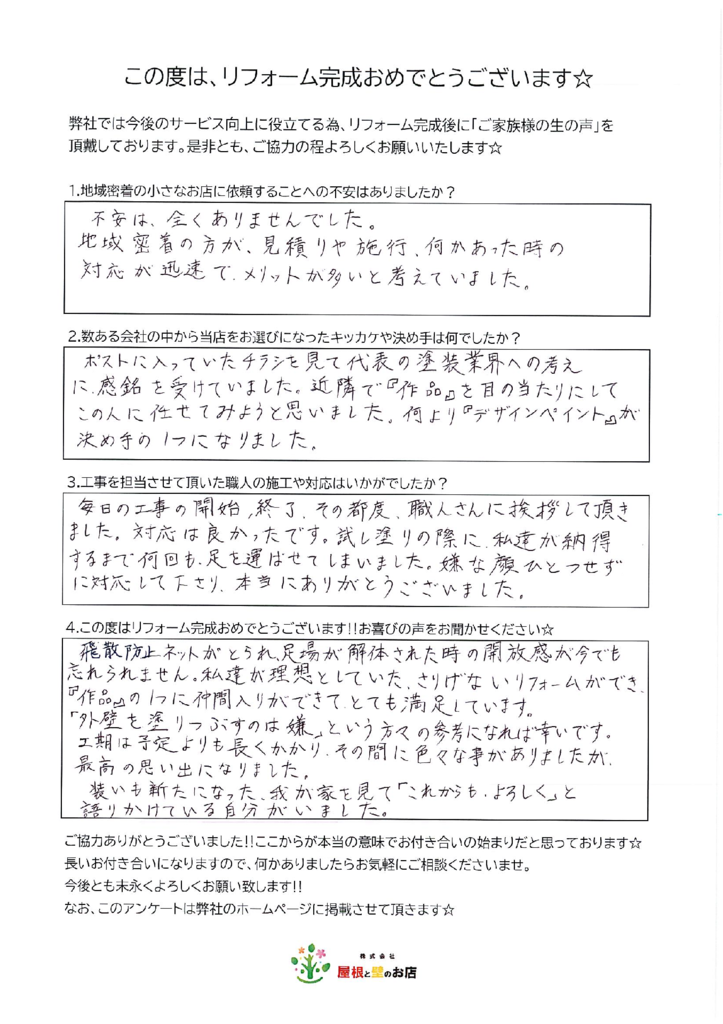 この度は、リフォーム完成おめでとうございます☆
弊社では今後のサービス向上に役立てる為、リフォーム完成後に「ご家族様の生の声」を
頂戴しております。是非とも、ご協力の程よろしくお願いいたします☆
1.地域密着の小さなお店に依頼することへの不安はありましたか?
不安は、全くありませんでした。
地域密着の方が、見積りや施行、何かあった時の
対応が迅速で、メリットが多いと考えていました。
2.数ある会社の中から当店をお選びになったキッカケや決め手は何でしたか?
ポストに入っていたチラシを見て代表の塗装業界への考え
に、感銘を受けていました。近隣で『作品』を目の当たりにして
この人に任せてみようと思いました。何より『デザインペイント』が
決め手の1つになりました。
3.工事を担当させて頂いた職人の施工や対応はいかがでしたか?
毎日の工事の開始、終了、その都度、職人さんに挨拶して頂き
ました。対応は良かったです。試し塗りの際に、私達が納得
するまで何回も、足を運ばせてしまいました。嫌な顔ひとつせず
に対応して下さり、本当にありがとうございました。
4.この度はリフォーム完成おめでとうございます!!お喜びの声をお聞かせください☆
飛散防止ネットがとられ、足場が解体された時の開放感が今でも
忘れられません。私達が理想としていた、さりげないリフォームができ、
『作品』の1つに仲間入りができて、とても満足しています。
「外壁を塗りつぶすのは嫌」という方々の参考になれば幸いです。
工期は予定よりも長くかかり、その間に色々な事がありましたが、
最高の思い出になりました。
装いも新たになった、我が家を見て「これからも、よろしく」と
語りかけている自分がいました。
ご協力ありがとうございました!!ここからが本当の意味でお付き合いの始まりだと思っております☆
長いお付き合いになりますので、何かありましたらお気軽にご相談くださいませ。
今後とも末永くよろしくお願い致します!!
なお、このアンケートは弊社のホームページに掲載させて頂きます☆
株式会社
屋根と壁のお店